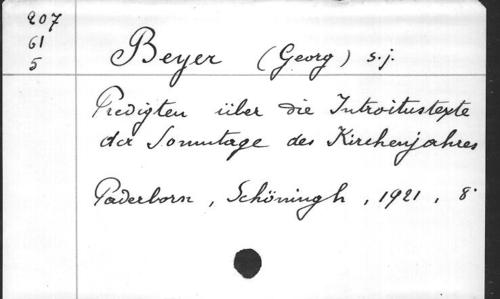 207
61
5
Beyer (Georg) s.j.
Predigten über die Introitustexte
der Sonntage des Kirchenjahres
Paderborn, Schöningh, 1921, 8°